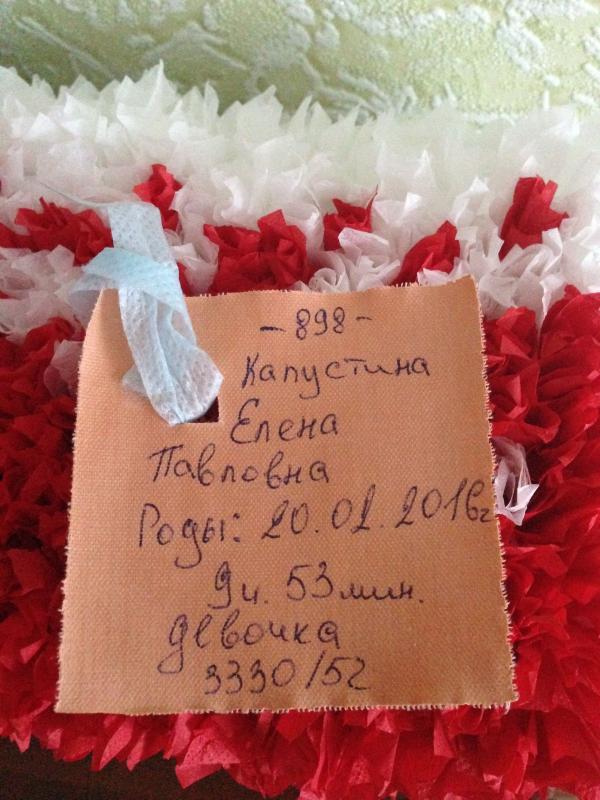 - 898 -
Капустина
Елена
Павловна
Роды: 20.02.2016г
9ч. 53мин.
девочка
3330/52